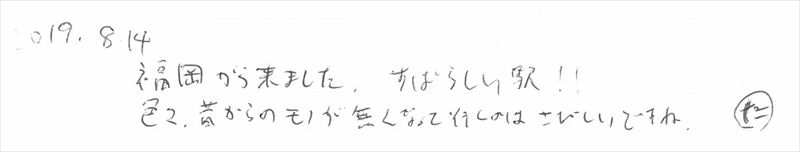 2019. 8.14
福岡から来ました. すばらしい駅!!
色々、昔からのモノが無くなって行くのは さびしいですね.